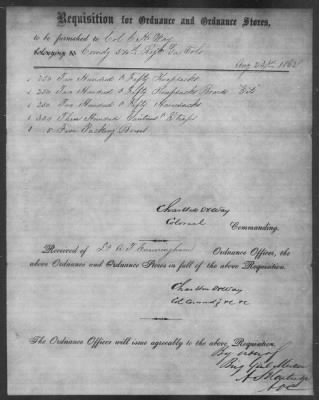 Requisition for Ordnance and Ordnance Stores,
to be furnished to Col C H Way
belonging to Comdg 54th Regt Ga Vols
Aug 24th, 186
250 Two Hundred & Fifty Knapsacks
250 Two Hundred & Fifty Knapsacks
250 Two Hundred & Fifty Haversacks
300 Three Hundred Canteen Straps
5 Five Packing Boxes
Charlton H Way
Colonel
Commanding.
Received of Lt Ordnance Officer, the
above Ordnance and Ordnance Stores in full of the above Requisition.
Charlton H Way
Col Comdg &c &c
The Ordnance Officer will issue agreeably to the above Requisition.
By order of
Brig Genl Mercer